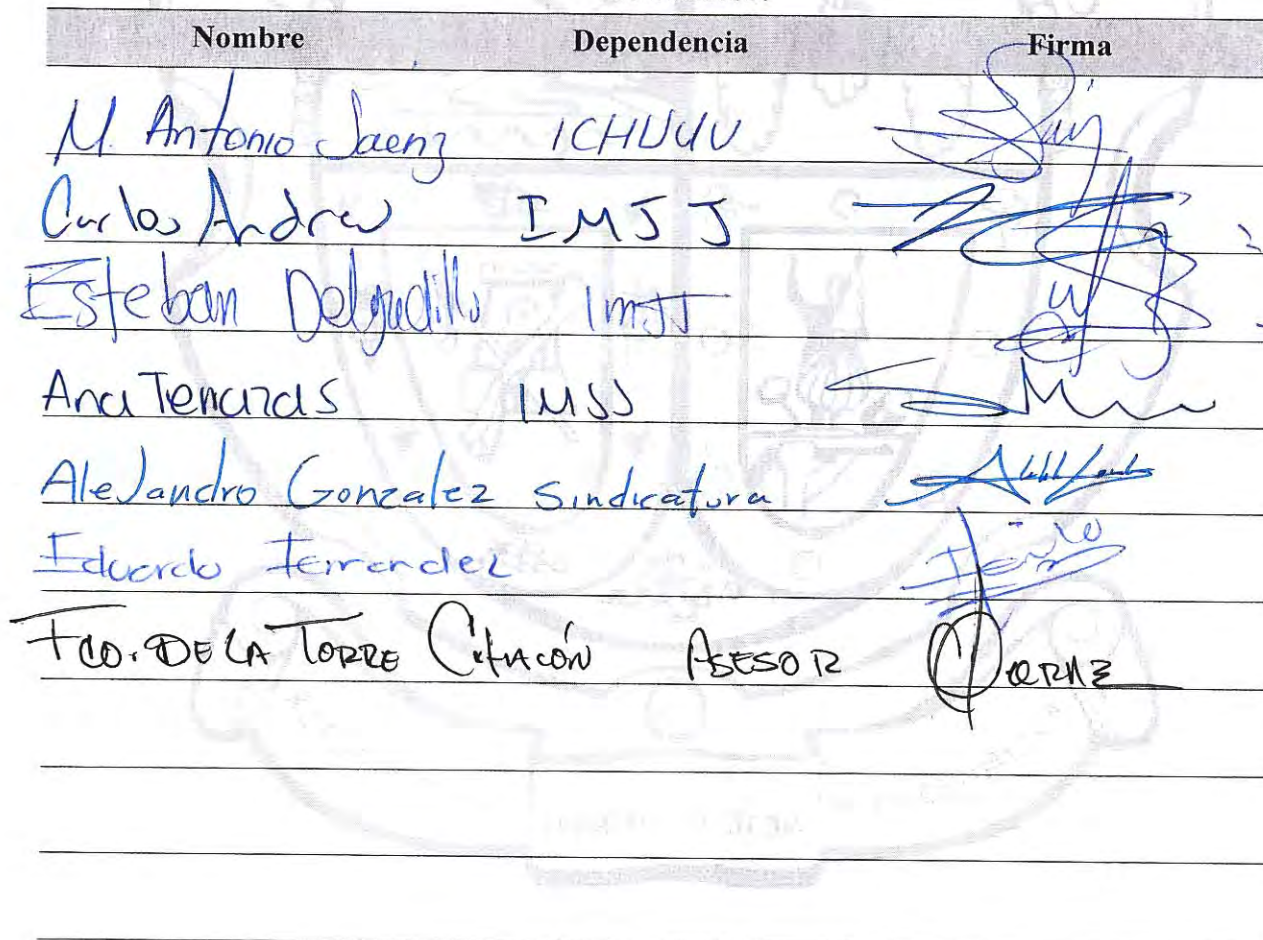 Nombre Dependencia Firma
M. Antonio Saenz ICHUUU
Carlos Andreu IMJJ
Esteban Delgadillo ImJJ
Ana Tenazas IMJJ
AleJandro Gonzalez Sindicatura
Eduardo Fernandez
Fco. DE LA TORRE ASESOR